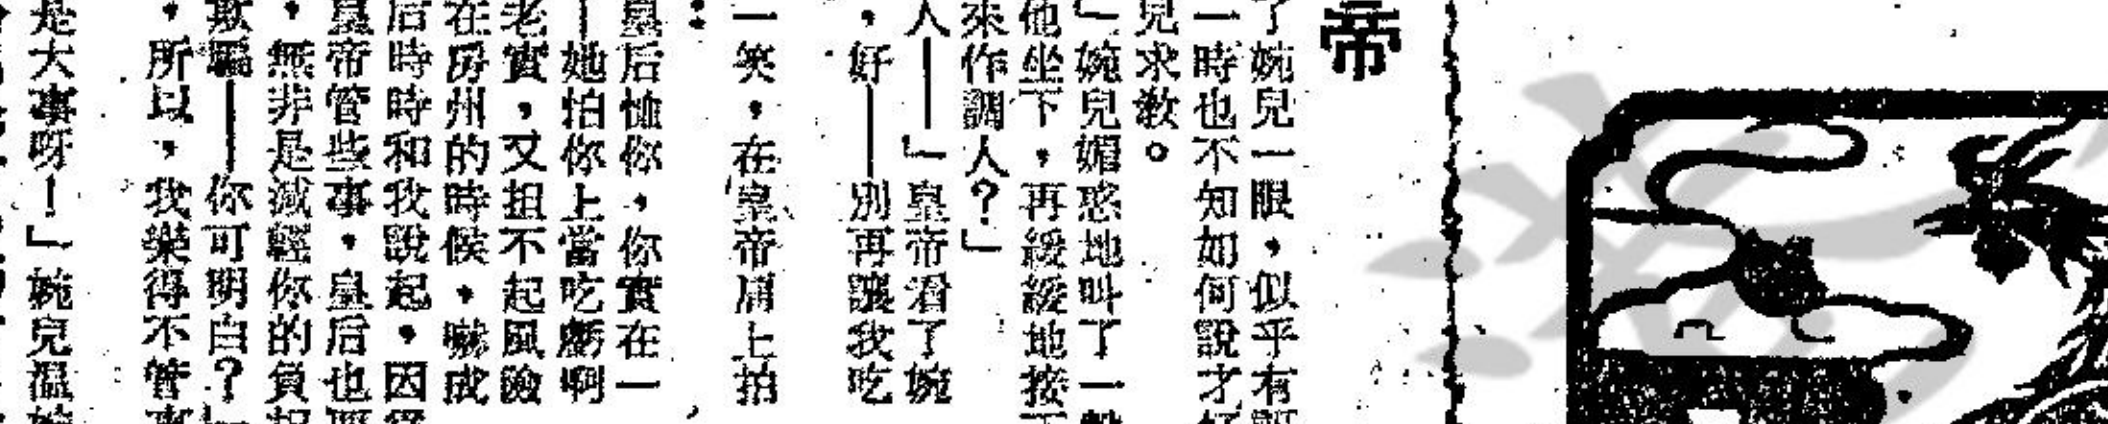 帝
了婉兒一眼，似乎有
一時也不知如何說才好
兒求教。
」婉兒媚惑地叫了一聲
他坐下，再緩緩地接下
來作調人？」
人——」皇帝看了婉
，好——別再讓我吃
一笑，在皇帝肩上拍
：
皇后恤你，你實在一
—她怕你上當吃虧啊
老實，又担不起風險
在房州的時候，嚇成
后時時和我說起，因爲
皇帝管些事，皇后也
，無非是減輕你的負担
欺騙——你可明白？
，所以，我樂得不管事
是大事呀！」婉兒溫婉